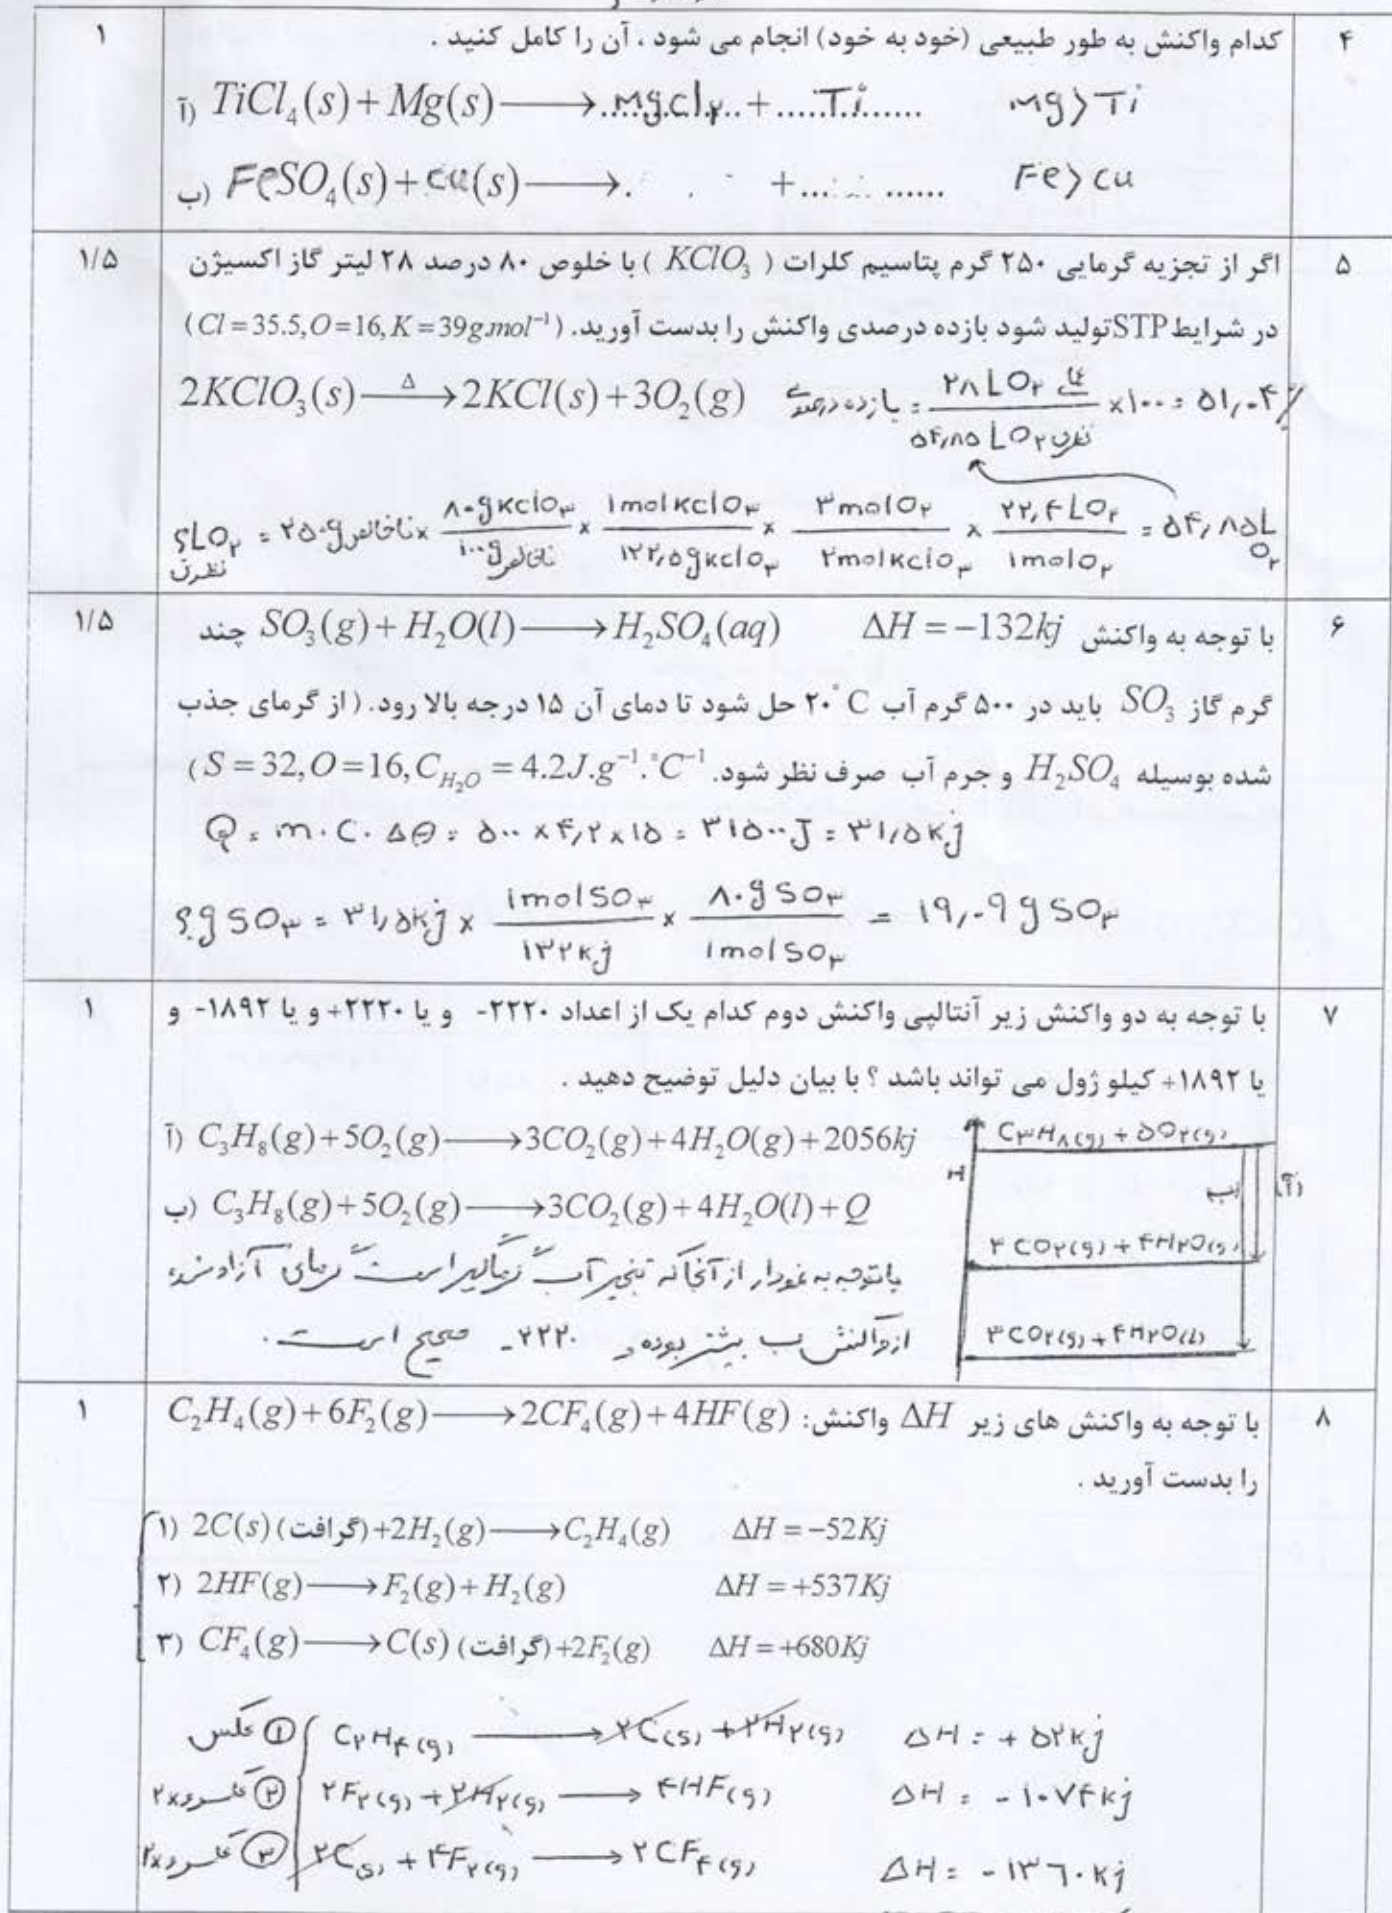 ۴ کدام واکنش به طور طبیعی (خود به خود) انجام می شود ، آن را کامل کنید . ۱
آ) TiCl₄(s)+Mg(s)⟶...MgCl۲...+.....Ti...... Mg>Ti
ب) FeSO₄(s)+Cu(s)⟶. +........... Fe>Cu
۵ اگر از تجزیه گرمایی ۲۵۰ گرم پتاسیم کلرات ( KClO₃ ) با خلوص ۸۰ درصد ۲۸ لیتر گاز اکسیژن ۱/۵
در شرایط STP تولید شود بازده درصدی واکنش را بدست آورید. (Cl=35.5,O=16,K=39g.mol⁻¹)
2KClO₃(s) —Δ→ 2KCl(s)+3O₂(g) بازده درصدی = ۲۸ LO۲ عملی / ۵۴٫۸۵ LO۲ نظری ×۱۰۰ = ۵۱٫۰۴٪
؟LO۲ نظری = ۲۵۰g ناخالص × ۸۰gKClO۳ / ۱۰۰g ناخالص × ۱molKClO۳ / ۱۲۲٫۵gKClO۳ × ۳molO۲ / ۲molKClO۳ × ۲۲٫۴LO۲ / ۱molO۲ = ۵۴٫۸۵L O۲
۶ با توجه به واکنش SO₃(g)+H₂O(l)⟶H₂SO₄(aq) ΔH=−132kj چند ۱/۵
گرم گاز SO₃ باید در ۵۰۰ گرم آب ۲۰°C حل شود تا دمای آن ۱۵ درجه بالا رود. (از گرمای جذب
شده بوسیله H₂SO₄ و جرم آب صرف نظر شود. S=32,O=16,C_H₂O=4.2J.g⁻¹.°C⁻¹)
Q = m.C.Δθ = ۵۰۰×۴٫۲×۱۵ = ۳۱۵۰۰J = ۳۱٫۵kj
؟gSO۳ = ۳۱٫۵kj × ۱molSO۳ / ۱۳۲kj × ۸۰gSO۳ / ۱molSO۳ = ۱۹٫۰۹gSO۳
۷ با توجه به دو واکنش زیر آنتالپی واکنش دوم کدام یک از اعداد ۲۲۲۰- و یا ۲۲۲۰+ و یا ۱۸۹۲- و ۱
یا ۱۸۹۲+ کیلو ژول می تواند باشد ؟ با بیان دلیل توضیح دهید .
آ) C₃H₈(g)+5O₂(g)⟶3CO₂(g)+4H₂O(g)+2056kj
ب) C₃H₈(g)+5O₂(g)⟶3CO₂(g)+4H₂O(l)+Q
با توجه به نمودار از آنجا که تبخیر آب گرماگیر است گرمای آزاد شده
از واکنش ب بیشتر بوده و ۲۲۲۰- صحیح است.
H
C۳H۸(g)+۵O۲(g)
ب) آ)
۳CO۲(g)+۴H۲O(g)
۳CO۲(g)+۴H۲O(l)
۸ با توجه به واکنش های زیر ΔH واکنش: C₂H₄(g)+6F₂(g)⟶2CF₄(g)+4HF(g) ۱
را بدست آورید .
۱) 2C(s)(گرافت)+2H₂(g)⟶C₂H₄(g) ΔH=−52Kj
۲) 2HF(g)⟶F₂(g)+H₂(g) ΔH=+537Kj
۳) CF₄(g)⟶C(s)(گرافت)+2F₂(g) ΔH=+680Kj
① عکس C۲H۴(g)⟶۲C(s)+۲H۲(g) ΔH=+۵۲kj
② عکس و ×۲ ۲F۲(g)+۲H۲(g)⟶۴HF(g) ΔH=-۱۰۷۴kj
③ عکس و ×۲ ۲C(s)+۴F۲(g)⟶۲CF۴(g) ΔH=-۱۳۶۰kj